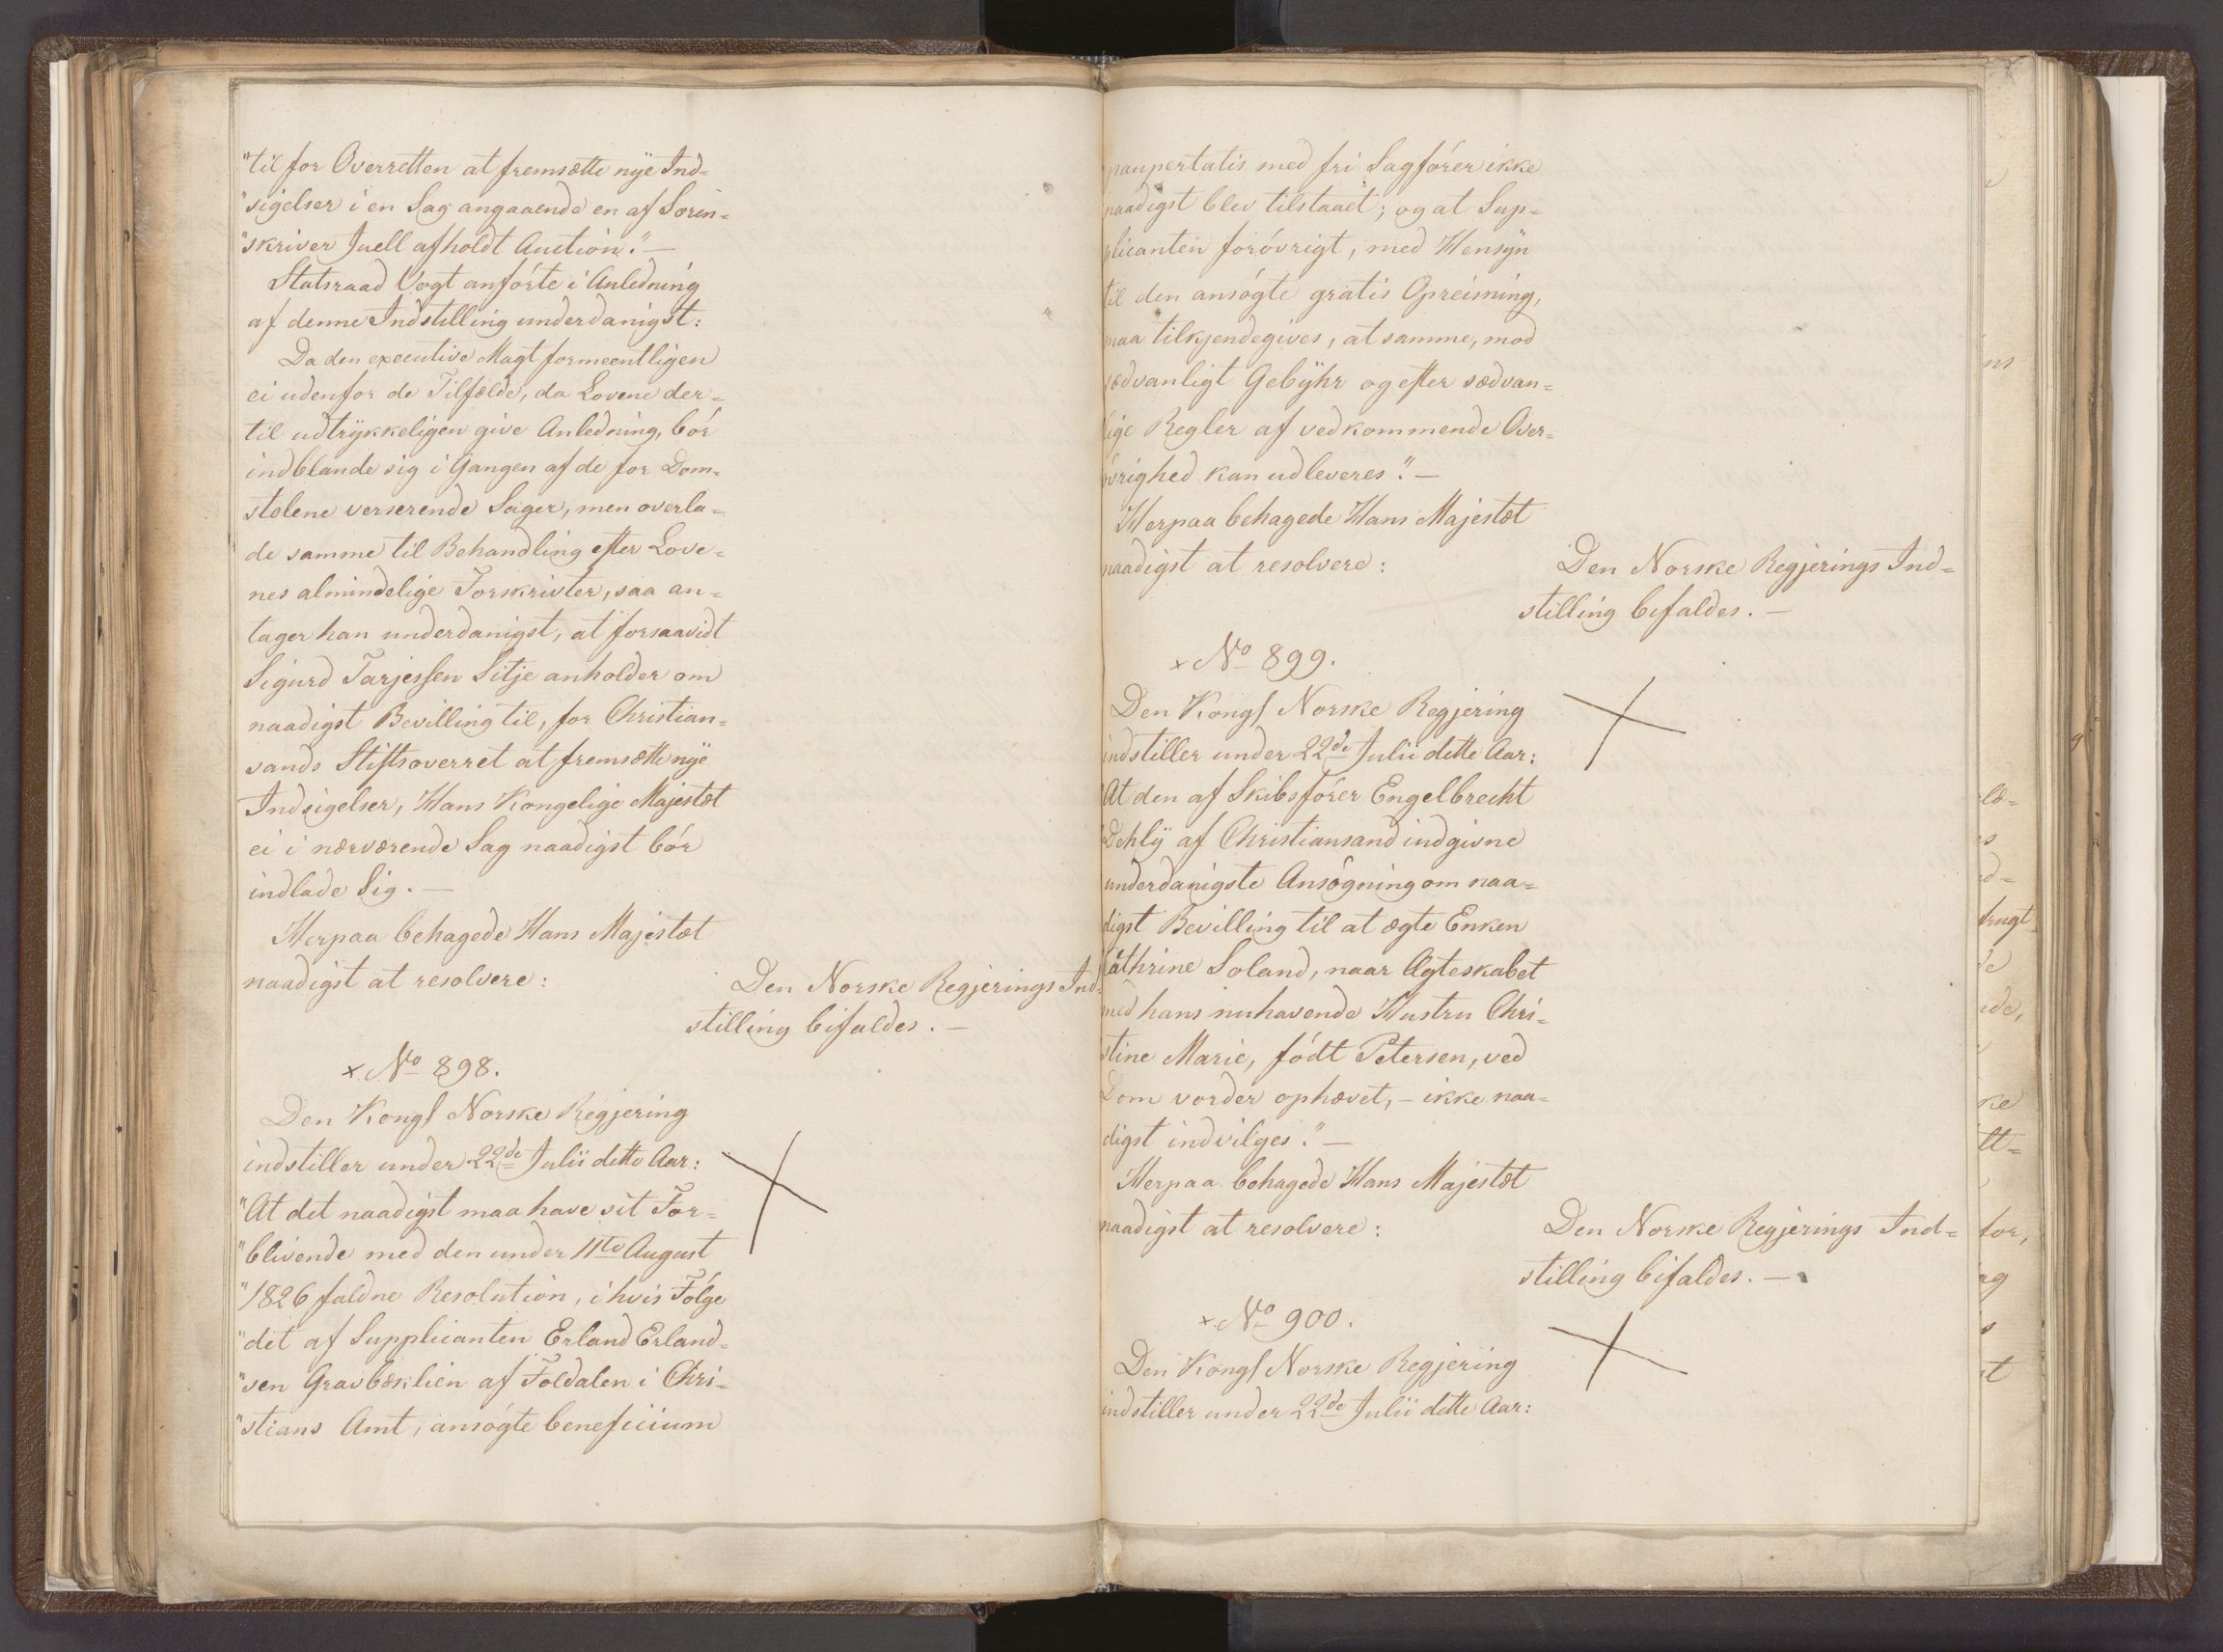 "til for Overretten at fremsætte nÿe Ind=
"sigelser i en Sag angaaende en af Soren=
"skriver Juell afholdt Auction."—
Statsraad Vogt anförte i Anledning
af denne Indstilling underdanigst:
Da den executive Magt formeentligen
ei udenfor de Tilfælde, da Lovene der=
til udtrÿkkeligen give Anledning, bör
indblande sig i Gangen af de for Dom=
stolene verserende Sager, men overla=
de samme til Behandling efter Love=
nes almindelige Forskrivter, saa an=
tager han underdanigst, at forsaavidt
Sigurd Tarjessen Sitje anholder om
naadigst Bevilling til, for Christian=
sands Stiftsoverret at fremsætte nÿe
Indsigelser, Hans Kongelige Majestæt
ei i nærværende Sag naadigst bör
indlade Sig.—
Herpaa behagede Hans Majestæt
naadigst at resolvere:
Den Norske Regjerings Ind=
stilling bifaldes.—
× No 898.
Den Kongl Norske Regjering
indstiller under 22de Julii dette Aar:
"At det naadigst maa have sit For=
"blivende med den under 11te August
"1826 faldne Resolution, i hvis Fölge
"det af Supplicanten Erland Erland=
"sen Gravbæklien af Foldalen i Chri=
"stians Amt, ansögte beneficium
paupertatis med fri Sagförer ikke
naadigst blev tilstaaet; og at Sup=
plicanten forövrigt, med Hensÿn
til den ansögte gratis Opreisning,
maa tilkjendegives, at samme, mod
sædvanligt Gebÿhr og efter sædvan=
lige Regler af vedkommende Over=
övrighed kan udleveres."—
Herpaa behagede Hans Majestæt
naadigst at resolvere:
Den Norske Regjerings Ind=
stilling bifaldes.—
× No 899.
Den Kongl Norske Regjering
indstiller under 22de Julii dette Aar:
At den af Skibsförer Engelbrecht
Dehlÿ af Christiansand indgivne
underdanigste Ansögning om naa=
digst Bevilling til at ægte Enken
Cathrine Soland, naar Ægteskabet
med hans nuhavende Hustru Chri=
stine Marie, födt Petersen, ved
Dom vorder ophævet,— ikke naa=
digst indvilges."—
Herpaa behagede Hans Majestæt
naadigst at resolvere:
Den Norske Regjerings Ind=
stilling bifaldes.—
× No 900.
Den Kongl Norske Regjering
indstiller under 22de Julii dette Aar: